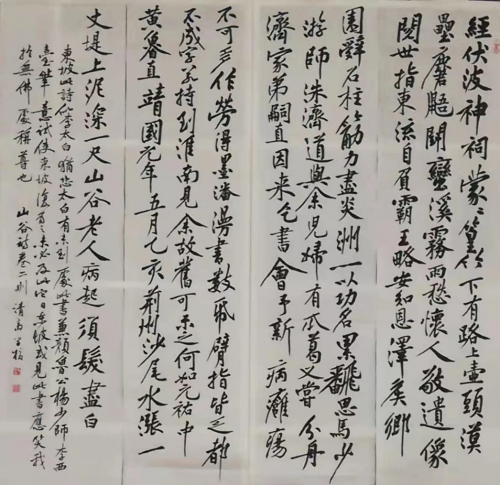 經伏波神祠蒙〻篁竹下有路上壺頭漠
壘麏鼯鬥蠻溪霧雨愁懷人敬遺像
閱世指東流自負霸王略安知恩澤侯鄉
園辭石柱筋力盡炎洲一以功名累翻思馬少
游師洙濟道與余兒婦有瓜葛又嘗分舟
濟家弟嗣直因來乞書會予新病癰瘍
不可多作勞得墨瀋漫書數紙臂指皆乏都
不成字若持到淮南見余故舊可示之何如元祐中
黃魯直靖國元年五月乙亥荊州沙尾水漲一
丈堤上泥深一尺山谷老人病起須髮盡白
東坡此詩似李太白猶恐太白有未到處此書兼顏魯公楊少師李西
臺筆意試使東坡復為之未必及此它日東坡或見此書應笑我
於無佛處稱尊也 山谷詩卷二則